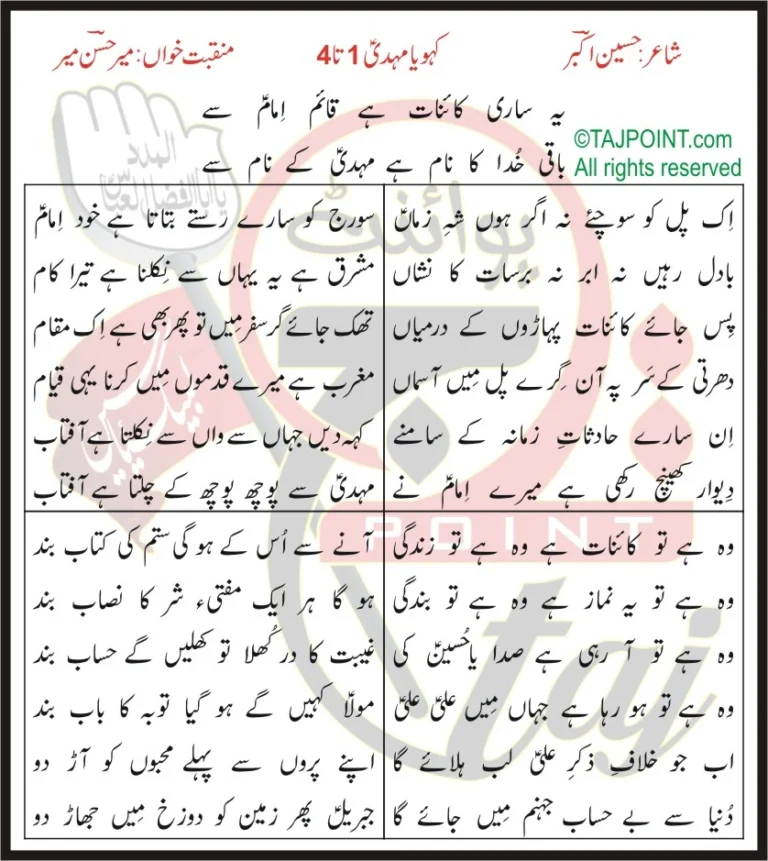 شاعر: حسین اکبرؔ
کہو یا مہدیؑ 1 تا 4
منقبت خواں: میر حسن میرؔ
یہ ساری کائنات ہے قائم اِمامؑ سے
باقی خُدا کا نام ہے مہدیؑ کے نام سے
©TAJPOINT.com
All rights reserved
اِک پل کو سوچئے نہ اگر ہوں شہِ زماںؑ
بادل رہیں نہ ابر نہ برسات کا نشاں
پِس جائے کائنات پہاڑوں کے درمیاں
دھرتی کے سَر پہ آن گِرے پل مِیں آسماں
اِن سارے حادثاتِ زمانہ کے سامنے
دِیوار کھینچ رکھی ہے میرے اِمامؑ نے
سورج کو سارے رستے بتاتا ہے خود اِمامؑ
مشرق ہے یہ یہاں سے نِکلنا ہے تیرا کام
تھک جائے گر سفر مِیں تو پھر بھی ہے اِک مقام
مغرب ہے میرے قدموں مِیں کرنا یہی قیام
کہہ دیں جہاں سے واں سے نِکلتا ہے آفتاب
مہدیؑ سے پوچھ پوچھ کے چلتا ہے آفتاب
وہ ہے تو کائنات ہے وہ ہے تو زندگی
وہ ہے تو یہ نماز ہے وہ ہے تو بندگی
وہ ہے تو آ رہی ہے صدا یا حُسینؑ کی
وہ ہے تو ہو رہا ہے جہاں مِیں علیؑ علیؑ
اب جو خلافِ ذکرِ علیؑ لب ہلائے گا
دُنیا سے بے حساب جہنم مِیں جائے گا
آنے سے اُس کے ہو گی ستم کی کتاب بند
ہو گا ہر ایک مفتیء شر کا نصاب بند
غیبت کا در کُھلا تو کھلیں گے حساب بند
مولاؑ کہیں گے ہو گیا توبہ کا باب بند
اپنے پروں سے پہلے محبوں کو آڑ دو
جبریلؑ پھر زمین کو دوزخ مِیں جھاڑ دو
المدد
یا ابا الفضل العباس
لبیک یا حسین
پوائنٹ
تاج
POINT
taj